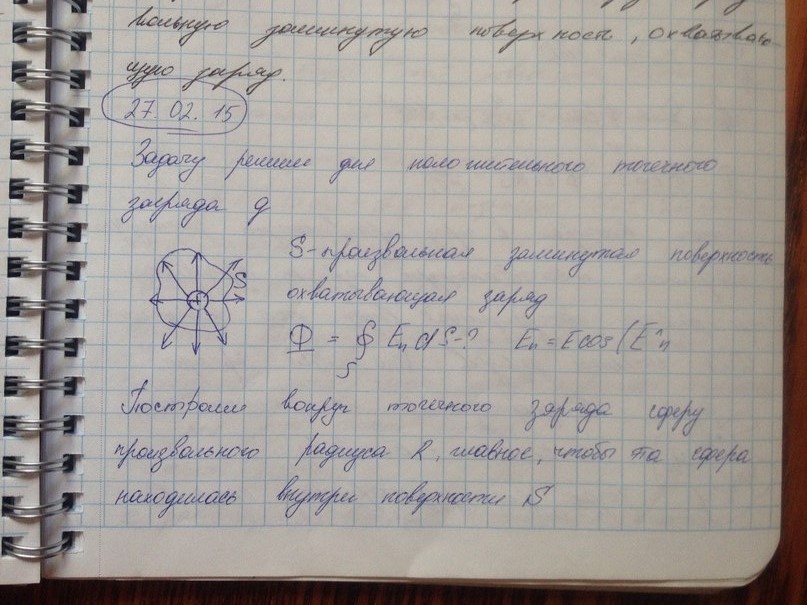 вольную замкнутую поверхность, охватываю-
щую заряд.
27.02.15
Задачу решим для положительного точечного
заряда q
S-произвольная замкнутая поверхность
охватывающая заряд
S
+
Ф = ∮ EndS-? En = Ecos(E^n
S
Построим вокруг точечного заряда сферу
произвольного радиуса R, главное, чтобы та сфера
находилась внутри поверхности S